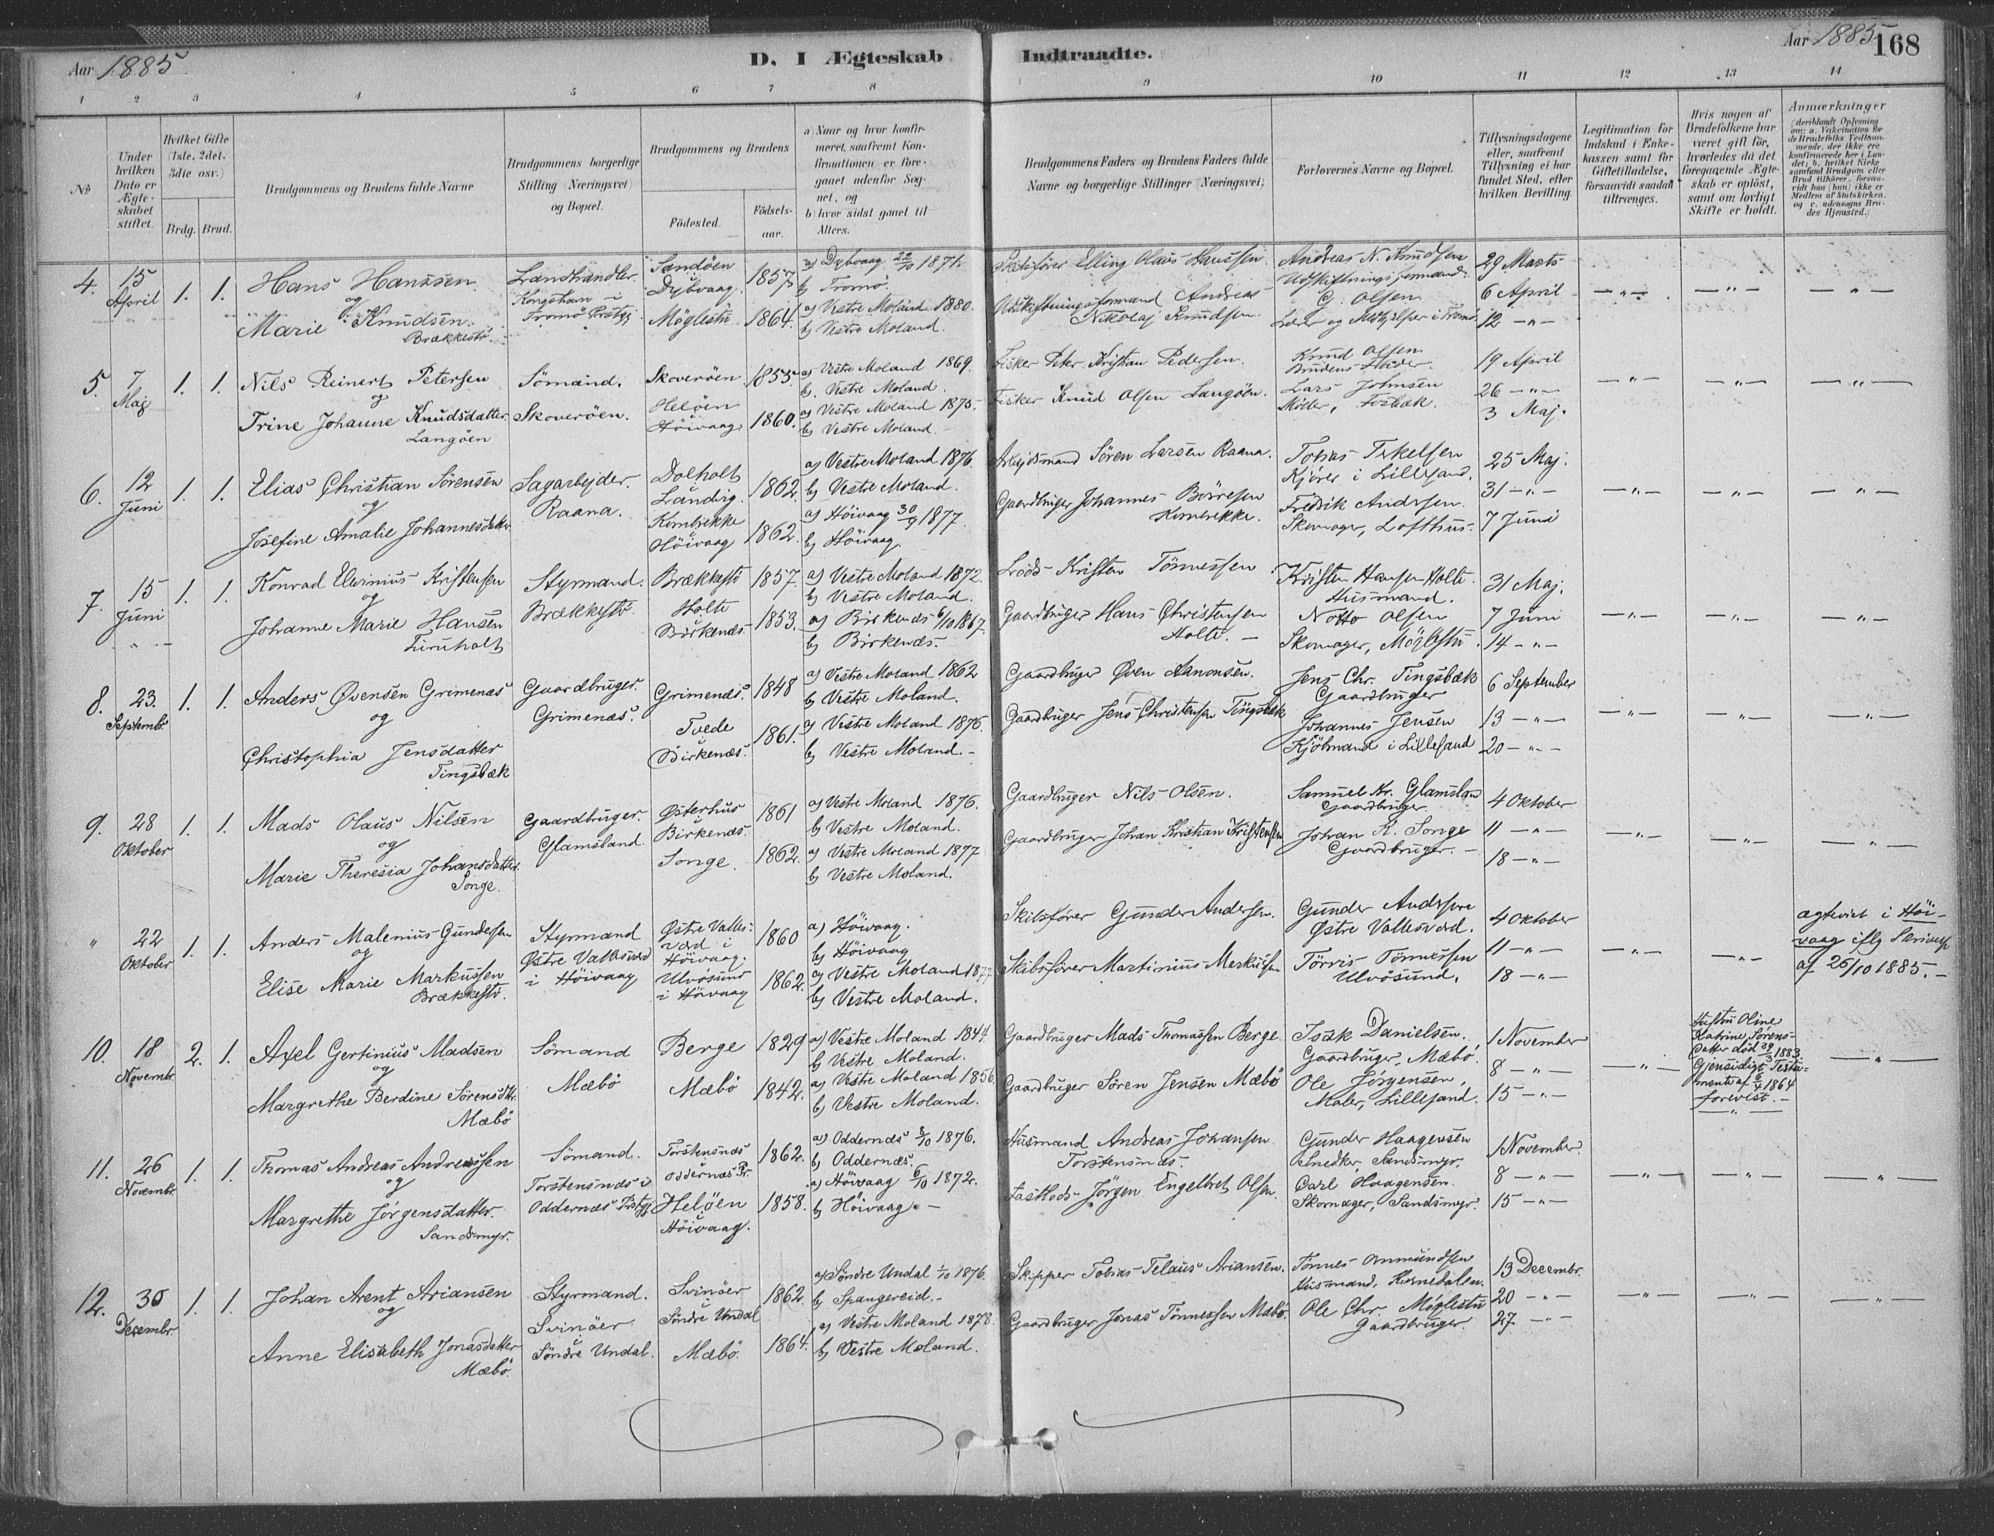 Aar 1885
D. I Ægteskab Indtraadte.
Aar 1885
168
1 2 3 4 5 6 7 8 9 10 11 12 13 14
No
Under hvilken Dato er Ægteskabet stiftet.
Hvilket Gifte (1ste, 2det, 3die osv.)
Brdg. Brud.
Brudgommens og Brudens fulde Navne
Brudgommens borgerlige Stilling (Næringsvei) og Bopæl.
Brudgommens og Brudens
Födested. Födselsaar.
a) Naar og hvor konfirmeret, saafremt Konfirmationen er foregaaet udenfor Sognet, og
b) hvor sidst gaaet til Alters.
Brudgommens Faders og Brudens Faders fulde Navne og borgerlige Stillinger (Næringsvei)
Forlovernes Navne og Bopæl.
Tillysningsdagene eller, saafremt Tillysning ei har fundet Sted, efter hvilken Bevilling.
Legitimation for Indskud i Enkekassen samt for Giftetilladelse, forsaavidt saadan tiltrænges.
Hvis nogen af Brudefolkene har været gift för, hvorledes da det foregaaende Ægteskab er oplöst, samt om lovligt Skifte er holdt.
Anmærkninger
(deriblandt Oplysning om: a. Vakcination for de Brudefolks Vedkommende, der ikke ere konfirmerede her i Landet; b. hvilket Kirkesamfund Brudgom eller Brud tilhörer, forsavidt han (hun) ikke er Medlem af Statskirken, og c. udensogns Brudes Hjemsted.)
4. 15 April 1. 1.
Hans Hanssen
og
Marie Knudsen
Brækkestö.
Landhandler
Kongshavn i
Tromö
Sandöen
Dybvaag 1857
Möglestu 1864.
a) Dybvaag 22/10 1871.
b) Tromö.
a) Vestre Moland 1880.
b) Vestre Moland.
Skibsförer Elling Olaus Hanssen.
Udskiftningsformand Andreas
Nikolaj Knudsen.
Andreas N. Knudsen
Udskiftningsformand
G. Olsen
29 Marts
6 April
12 — „ —
— „ — — „ — — „ —
5. 7 Maj 1. 1.
Nils Reinert Petersen
og
Trine Johanne Knudsdatter
Langöen
Sömand.
Skoveröen.
Skoveröen 1855
Helöen
Höivaag. 1860.
a) Vestre Moland 1869.
b) Vestre Moland.
a) Vestre Moland 1875.
b) Vestre Moland.
Fisker Peter Kristian Pedersen.
Fisker Knud Olsen Langöen.
Knud Olsen
Brudens Fader.
Lars Johnsen
Möller, Fosbæk.
19 April
26 — „ —
3 Maj.
— „ — — „ — — „ —
6. 12 Juni 1. 1.
Elias Christian Sörensen
og
Josefine Amalie Johannesdatter
Sagarbejder.
Raana.
Dolholt
Landvig. 1862.
Kornbrekke
Höivaag 1862.
a) Vestre Moland 1876.
b) Vestre Moland.
a) Höivaag 30/9 1877.
b) Höivaag.
Arbejdsmand Sören Larsen Raana.
Gaardbruger Johannes Börresen
Kornbrekke.
Tobias Terkelsen
Kjörer i Lillesand.
Fredrik Andersen.
Skomager, Lofthus.
25 Maj.
31 — „ —
7 Juni
— „ — — „ — — „ —
7. 15 Juni 1. 1.
Konrad Elevinius Kristensen
og
Johanne Marie Hansen
Styrmand.
Brækkestö.
Brækkestö 1857.
Holte
Birkenæs. 1853.
a) Vestre Moland 1872.
b) Vestre Moland.
a) Birkenæs 6/10 1867.
b) Birkenæs.
Lods Kristen Tönnessen
Gaardbruger Hans Christensen
Holte. —
Kristen Hansen Holte.
Husmand.
Notto Olsen
Skomager, Möglestu.
31 Maj.
7 Juni
14 — „ —
— „ — — „ — — „ —
8. 23. Septembr. 1. 1.
Anders Övensen Grimenæs
og
Christophia Jensdatter
Tingsbæk
Gaardbruger.
Grimenæs.
Grimenæs. 1848
Tvede
Birkenæs. 1861.
a) Vestre Moland 1862
b) Vestre Moland.
a) Vestre Moland 1876.
b) Vestre Moland. —
Gaardbruger Öven Aanonsen.
Gaardbruger Jens Christensen Tingsbæk
Jens Chr. Tingsbæk
Gaardbruger
Johannes Jensen
Kjöbmand i Lillesand
6 September
13 — „ —
20 — „ —
— „ — — „ — — „ —
9. 28 Oktober 1. 1.
Mads Olaus Nilsen
og
Marie Theresia Johansdatter
Songe.
Gaardbruger.
Glamsland.
Österhus
Birkenæs. 1861
Songe. 1862.
a) Vestre Moland 1876.
b) Vestre Moland.
a) Vestre Moland 1877
b) Vestre Moland.
Gaardbruger Nils Olsen.
Gaardbruger Johan Kristian Kristensen
Samuel Kr. Glamsland
Gaardbruger.
Johan K. Songe
Gaardbruger. —
4 Oktober
11 — „ —
18 — „ —
— „ — — „ — — „ —
„ 22 Oktober 1. 1.
Anders Malenius Gundersen
og
Elise Marie Markussen
Brækkestö.
Styrmand
Östre Vallesværd
i Höivaag
Östre Valles-
værd i
Höivaag. 1860
Ulvösund
i Höivaag 1862.
a) Höivaag.
b) Höivaag
a) Vestre Moland 1877.
b) Vestre Moland.
Skibsförer Gunder Andersen.
Skibsförer Martinius Merkussen
Gunder Andersen
Östre Vallesværd.
Törres Tönnessen
Ulvösund.
4 Oktober
11 — „ —
18 — „ —
— „ — — „ —
agteviet i Höi-
vaag iflg Skrivelse
af 26/10 1885. —
10. 18 Novembr. 2. 1.
Axel Gertinius Madsen
og
Margrethe Berdine Sörensdtr.
Mæbö
Sömand
Mæbö
Berge 1829
Mæbö 1842.
a) Vestre Moland 1844.
b) Vestre Moland.
a) Vestre Moland 1856.
b) Vestre Moland.
Gaardbruger Mads Thomassen Berge
Gaardbruger Sören Jensen Mæbö
Isak Danielsen.
Gaardbruger, Mæbö.
Ole Jörgensen,
Maler, Lillesand.
1 November
8 — „ —
15 — „ —
— „ —
Hustru Oline
Katrine Sörens-
datter död 1883.
Gjensidigt Testa-
mente af 1864
forevist. —
— „ —
11. 26 Novembr. 1. 1.
Thomas Andreas Andreassen
og
Margrethe Jörgensdatter.
Sandsmyr.
Sömand.
Torstensnæs i
Oddernæs Prstgj.
Torstensnæs
Oddernæs Pr. 1862.
Helöen
Höivaag. 1858.
a) Oddernæs 8/10 1876.
b) Oddernæs.
a) Höivaag 6/10 1872.
b) Höivaag. —
Husmand Andreas Johansen
Torstensnæs.
Fastlods Jörgen Engelbret Olsen.
Gunder Haagensen
Snedker, Sandsmyr.
Carl Haagensen.
Skomager, Sandsmyr.
1 November.
8 — „ —
15 — „ —
— „ — — „ — — „ —
12. 30 Decembr. 1. 1.
Johan Arent Ariansen
og
Anne Elisabeth Jonasdatter
Mæbö.
Styrmand.
Svinöer
Söndre Undal.
Svinöer
Söndre Undal 1862.
Mæbö. 1864.
a) Söndre Undal 1/10 1876.
b) Spangereid. —
a) Vestre Moland 1878.
b) Vestre Moland.
Skipper Tobias Telaus Ariansen.
Gaardbruger Jonas Tönnessen Mæbö.
Tönnes Ommundsen
Husmand,
Ole Chr. Möglestu
Gaardbruger.
13 Decembr.
20 — „ —
27 — „ —
— „ — — „ — — „ —